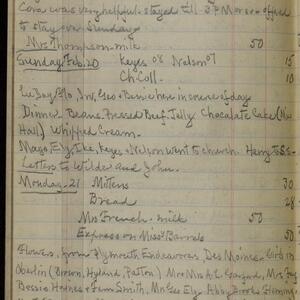 Cora was very helpful - stayed till 3 P.M. or so - offered
to stay over Sunday
Mrs. Thompson - milk 50
Sunday Feb. 20 Keyes or Nelson 15
Ch. Coll. 10
Geo & Bernice here in course of day
Dinner Beans Pressed Beef, Jelly Chocolate Cake (Mrs
Hall) Whipped Cream.
Mayo, Ely, Ike, Keyes & Nelson went to church. Harry to S.S.
Letters to Wilde and John.
Monday - 21 Mittens 30
Bread 28
Mrs French - milk 50
Express on Miss'y Barrels 50
Flowers, from Plymouth Endeavorers, Des Moines
Oberlin (Brown, Hyland, Patton) Mrs
Bessie Holmes & Fern Smith, Geo Ely